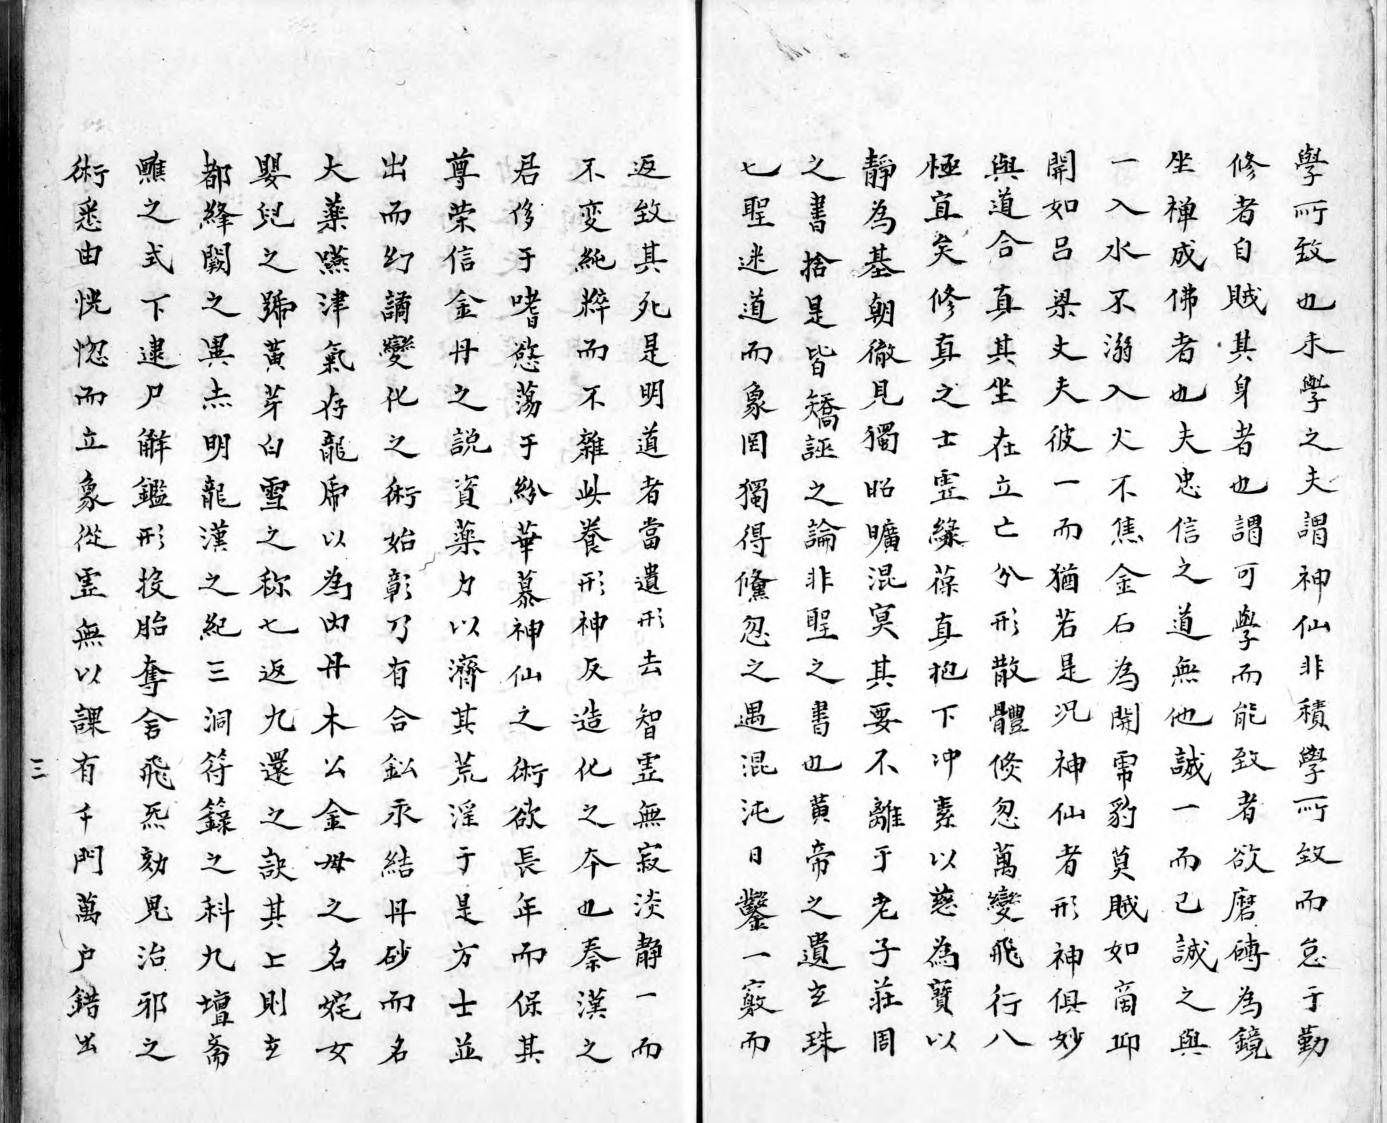 學所致也未學之夫謂神仙非積學所致而怠于勤
修者自賊其身者也謂可學而能致者欲磨磚為鏡
坐禅成佛者也夫忠信之道無他誠一而已誠之與
一入水不溺入火不焦金石為開虎豹莫賊如商丘
開如吕梁丈夫彼一而猶若是况神仙者形神俱妙
與道合真其坐在立亡分形散體倏忽萬變飛行八
極宜矣修真之士霊緣葆真抱下冲素以慈為寶以
静為基朝徹見獨昭曠混冥其要不離于老子莊周
之書捨是皆矯誣之論非聖之書也黄帝之遺玄珠
七聖迷道而象罔獨得儵忽之遇混沌日鑿一竅而
返致其死是明道者當遺形去智霊無寂淡静一而
不変純粹而不雜此養形神反造化之本也秦漢之
君侈于嗜慾蕩于紛華慕神仙之術欲長年而保其
尊荣信金丹之説資薬力以濟其荒淫于是方士並
出而幻譎變化之術始彰乃有合鈆汞結丹砂而名
大薬嚥津氣存龍虎以為内丹木公金母之名姹女
嬰兒之號黄芽白雪之称七返九還之訣其上則玄
都絳闕之異赤明龍漢之紀三洞符籙之科九壇斋
醮之式下逮尸解鑑形投胎奪舎飛炁劾鬼治邪之
術悉由恍惚而立象從霊無以課有千門萬户錯出
三